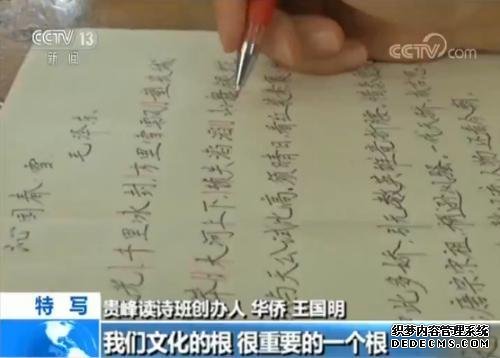 CCTV 13
新闻
CCTV.com
沁园春雪
毛泽东
光 千里冰封,万里雪飘,望长城
大河上下,顿失滔滔,山舞银蛇
与天公试比高,须晴日,看红装素裹
此多娇,引无数英雄竞折腰,惜秦皇
唐宗宋祖,稍逊风骚,一代天骄,
人物 还看今朝
特写
贵峰读诗班创办人 华侨 王国明
我们文化的根 很重要的一个根
织梦内容管理系统
DEDECMS.COM